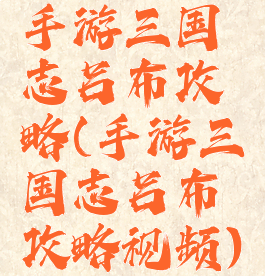 手游三国
志吕布攻
略(手游三
国志吕布
攻略视频)